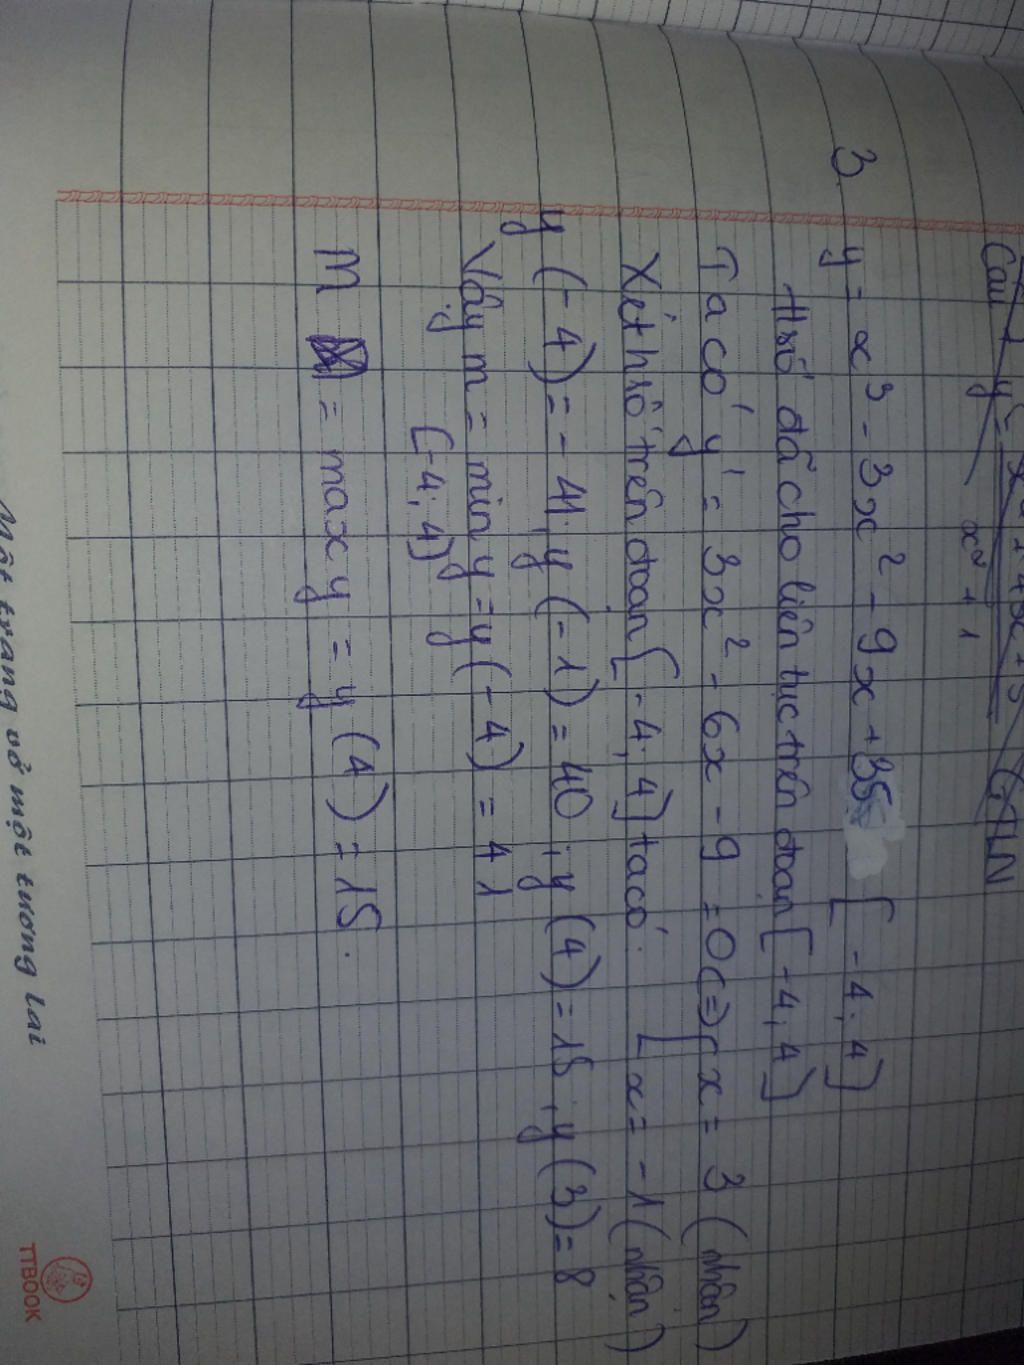 Câu 1 y = x² + 4x + 5 GTLN
x² + 1
3. y = x³ - 3x² - 9x + 35 [-4; 4]
Hsố đã cho liên tục trên đoạn [-4; 4]
Ta có y' = 3x² - 6x - 9 = 0 (=) [ x = 3 (nhận)
Xét hsố trên đoạn [-4; 4] ta có: [ x = -1 (nhận)
y (-4) = - 41; y (-1) = 40 ; y (4) = 15 ; y (3) = 8
Vậy m = min y = y (-4) = 41
[-4; 4]
M = max y = y (4) = 15.
Một trang vở một tương lai
TTBOOK